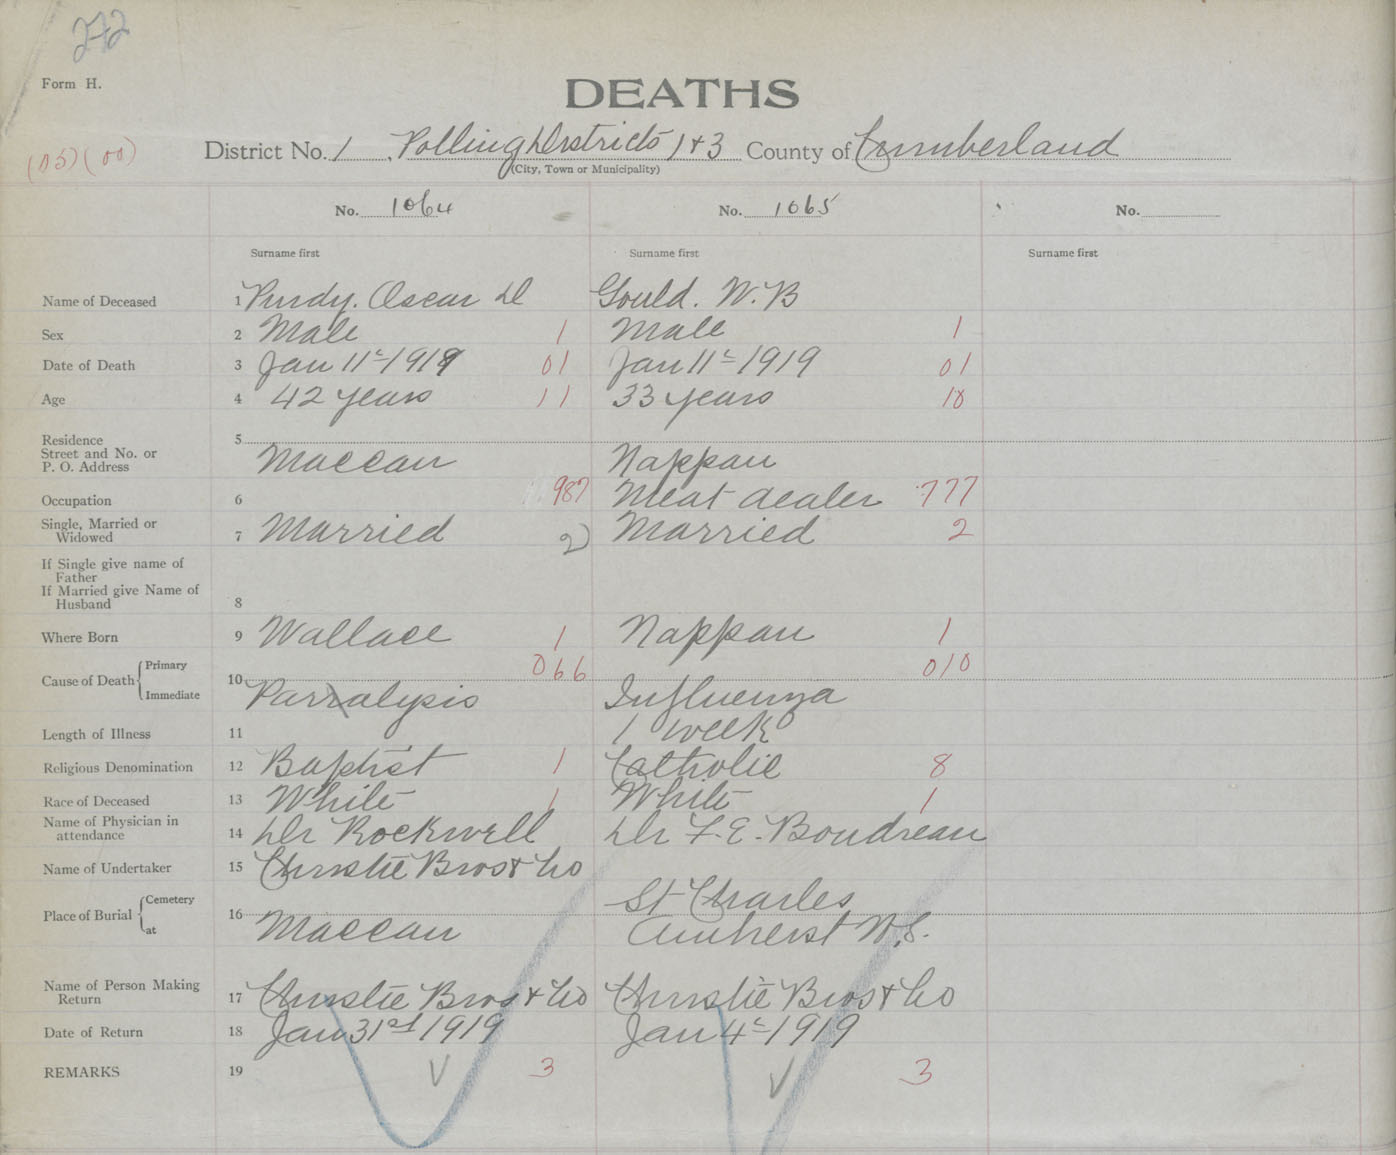 242
Form H.
DEATHS
(05) (00)
District No. 1 Polling Districts 1 & 3 County of Cumberland
(City, Town or Municipality)
No. 1064 No. 1065 No.
Surname first Surname first Surname first
Name of Deceased 1 Purdy. Oscar D Gould. W. B
Sex 2 Male 1 Male 1
Date of Death 3 Jan 11th 1919 01 Jan 11th 1919 01
Age 4 42 years 11 33 years 10
Residence 5
Street and No. or
P. O. Address Maccan Nappan
Occupation 6 987 Meat dealer 777
Single, Married or
Widowed 7 Married 2 Married 2
If Single give name of
Father
If Married give Name of
Husband 8
Where Born 9 Wallace 1 Nappan 1
Cause of Death Primary 10 066 010
Immediate Parralysis Influenza
Length of Illness 11 1 week
Religious Denomination 12 Baptist 1 Catholic 8
Race of Deceased 13 White 1 White 1
Name of Physician in
attendance 14 Dr Rockwell Dr F. E. Boudreau
Name of Undertaker 15 Christie Bros & Co
Place of Burial Cemetery 16 St Charles
at Maccan Amherst N.S.
Name of Person Making
Return 17 Christie Bros & Co Christie Bros & Co
Date of Return 18 Jan 31st 1919 Jan 4th 1919
REMARKS 19 3 3